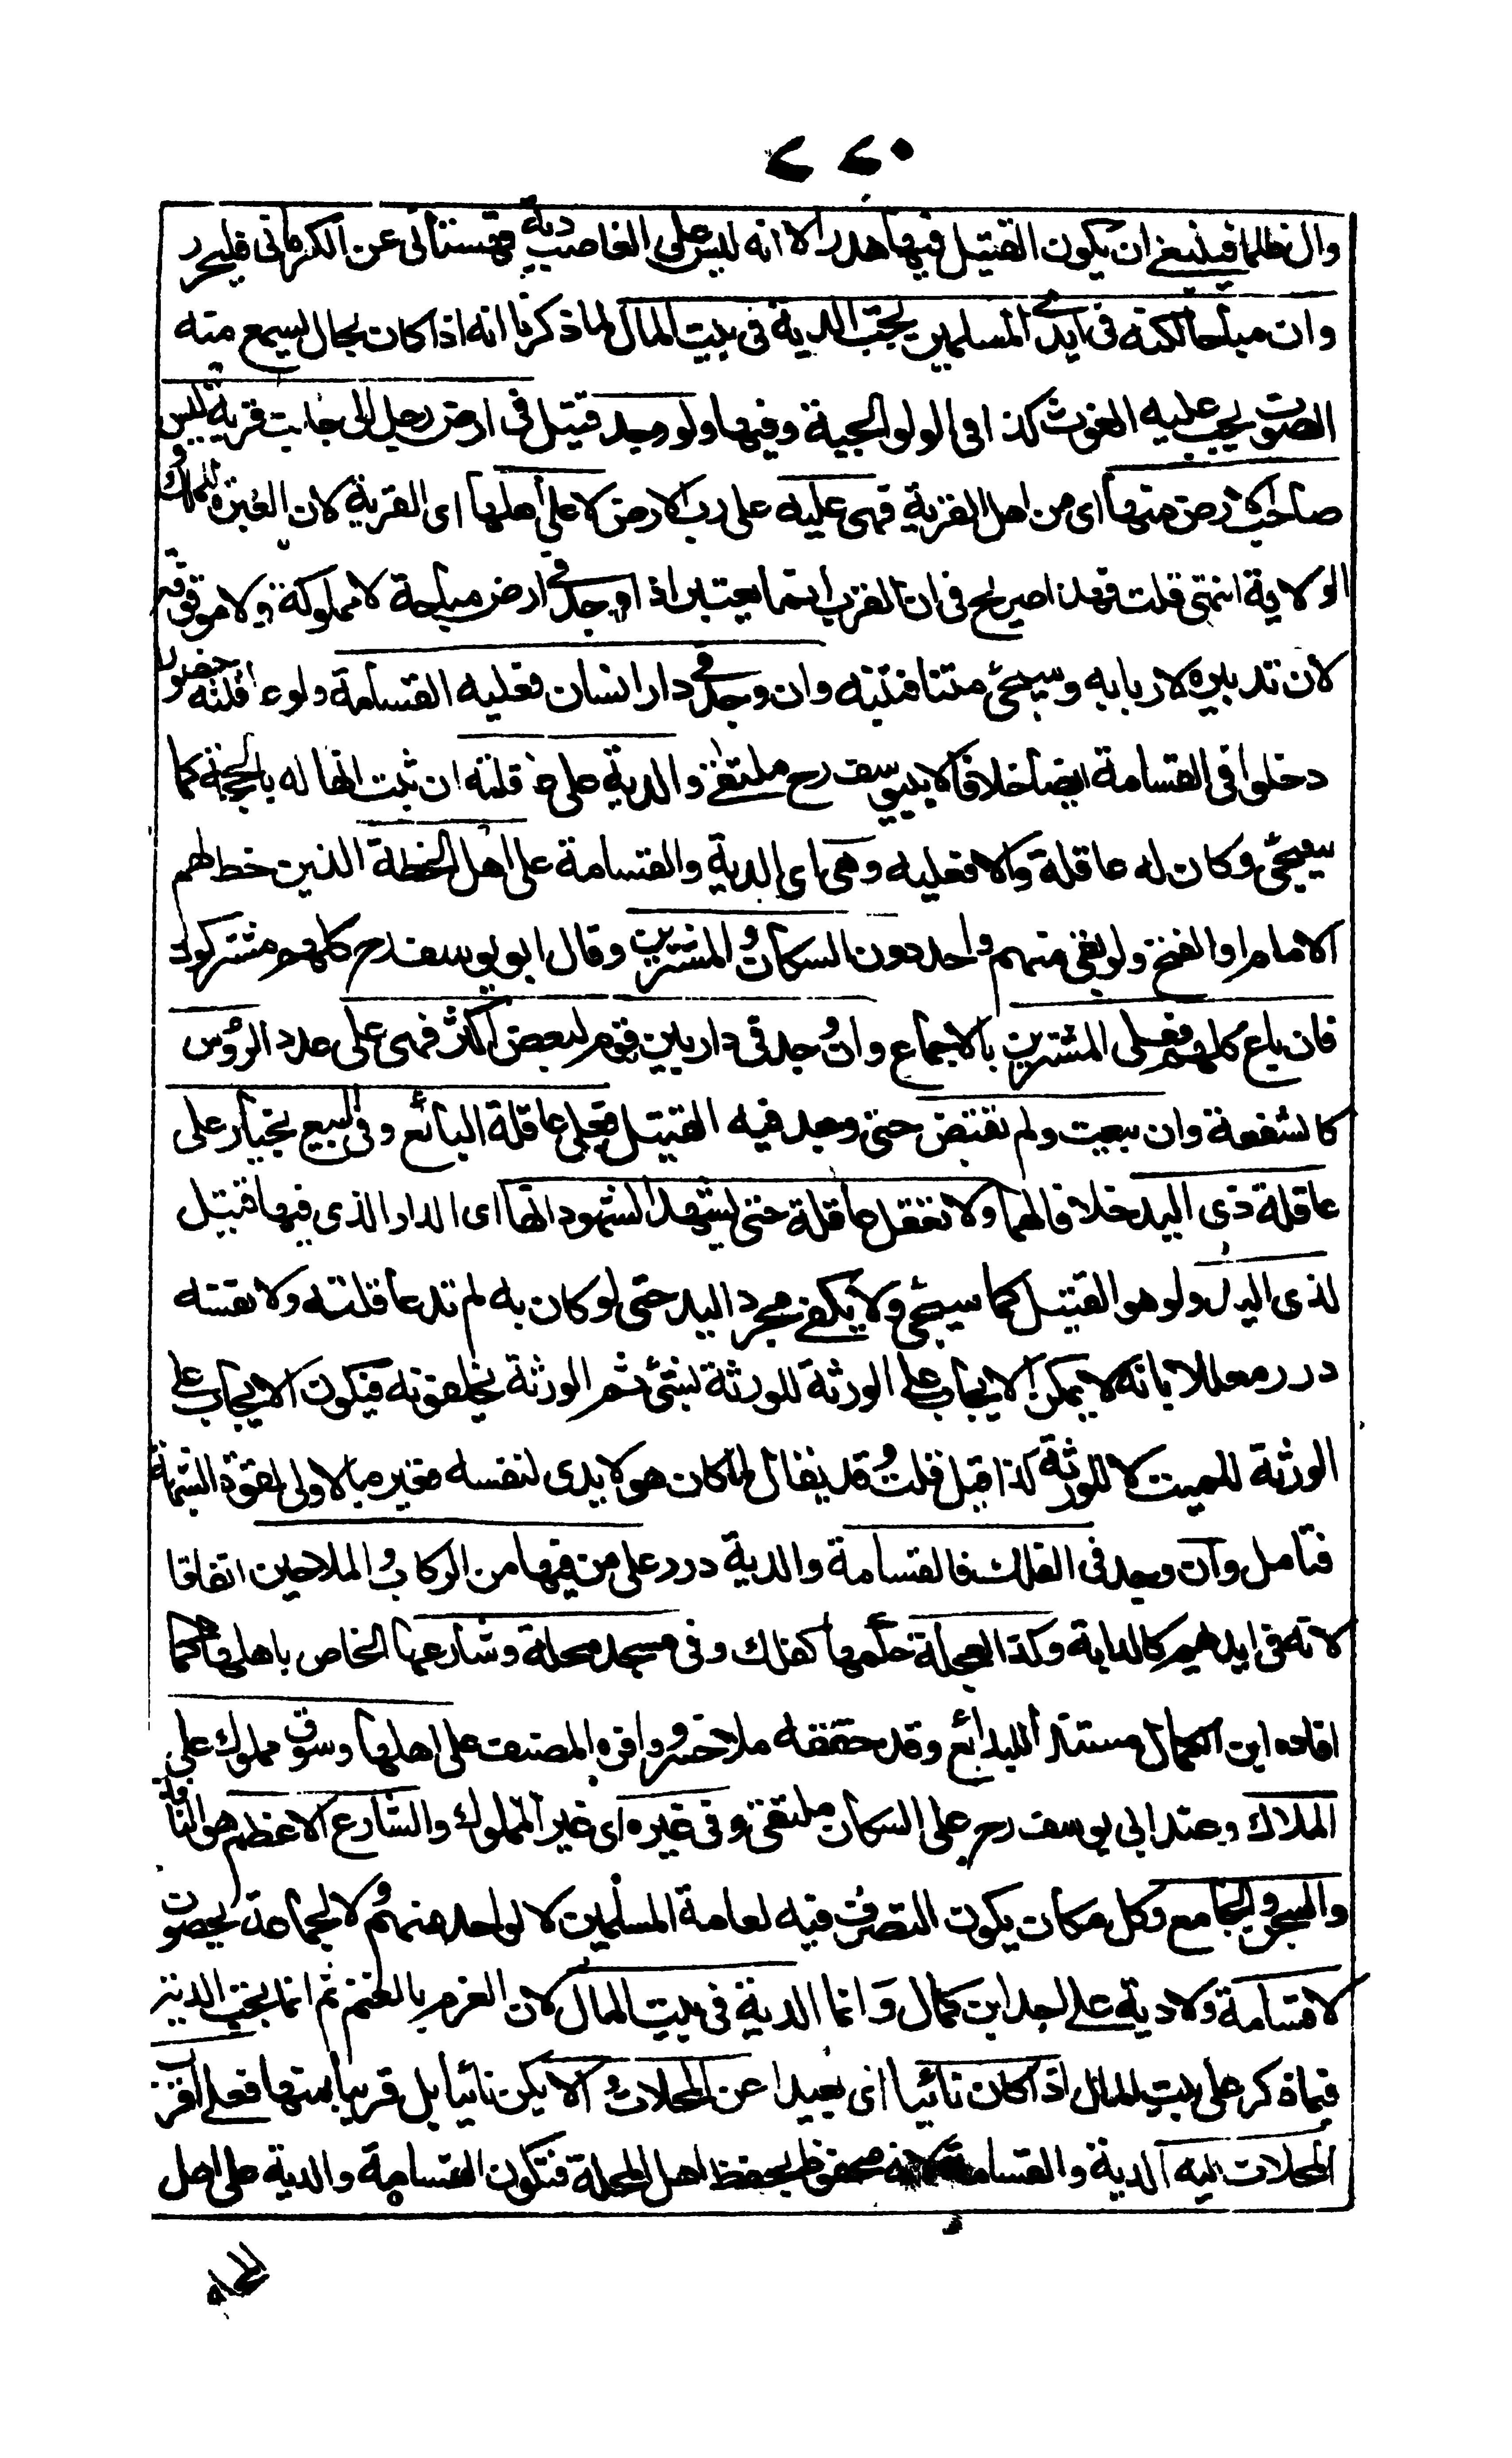 ٢٢٠
وال ظلما فينبغي ان يكون القتيل فيها هدرا لا انه ليس على الغاصب دية قهستاني عن الكرماني فليحرر
وان مباحا لكنه في ايدي المسلمين تجب الدية في بيت المال لما ذكرنا انه اذا كان بحال يسمع منه
الصوت يجب عليه الغوث كذا في الولوالجية وفيها ولو وجد قتيل في ارض رجل الى جانب قرية ليس
صاحب الارض منها اى من اهل القرية فهى عليه على رب الارض لا على اهلها اى القرية لان العبرة للملك و
الولاية انتهى قلت فهذا صريح في ان القرب انما يعتبر اذا وجد في ارض مباحة لا مملوكة ولا موقوفة
لان تدبيره لاربابه وسيجئ متنا فتنبه وان وجد في دار انسان فعليه القسامة ولو عاقلته حضورا
دخلوا في القسامة ايضا خلافا لابي يوسف رح ملتقى والدية على عاقلته ان ثبت انها له بالحجة كما
سيجئ وكان له عاقلة والا فعليه وهى اى الدية والقسامة على اهل الخطة الذين خط لهم
الامام اول الفتح ولو بقى منهم واحد دون السكان والمشترين وقال ابو يوسف رح كلهم مشتركون
فان باع كلهم فعلى المشترين بالاجماع وان وجد في دار بين قوم لبعض اكثر فهى على عدد الرؤس
كالشفعة وان بيعت ولم تقبض حتى وجد فيه القتيل فعلى عاقلة البائع وفي البيع بخيار على
عاقلة ذى اليد خلافا لهما ولا تعقل عاقلة حتى يشهد الشهود انها اى الدار الذي فيها قتيل
لذى اليد ولو هو القتيل كما سيجئ ولا يكفي مجرد اليد حتى لو كان به لم تدعاقلته ولا نفسه
درر معللا بانه لا يمكن الايجاب على الورثة للورثة نبتئ ثم الورثة يخلفونه فيكون الايجاب على
الورثة للميت لا للورثة كذا قيل قلت وقد يقال لما كان هو لا يدى لنفسه فغيره بالاولى لقوة الشبهة
فتامل وان وجد في الفلك فالقسامة والدية درر على من فيها من الركاب والملاحين اتفاقا
لانه في ايديهم كالدابة وكذا العجلة حكمها كفلك وفي مسجد محلة وشارعها الخاص باهلها كما
افاده ابن الكمال مستندا للبدائع وقد حققه ملا خسرو واقره المصنف على اهلها وسوق مملوك على
الملاك وعند ابي يوسف رح على السكان ملتقى وفي غيره اى غير المملوك والشارع الاعظم هو النافذ
والسجن والجامع وكل مكان يكون التصرف فيه لعامة المسلمين لا لواحد منهم ولا لجماعة يحصون
لا قسامة ولا دية على احد ابن كمال وانما الدية في بيت المال لان الغرم بالغنم ثم انما تجب الدية
فيما ذكر على بيت المال اذا كان نائيا اى بعيدا عن المحلات والا يكن نائيا بل قريبا منها فعلى اقرب
المحلات اليه الدية والقسامة محفوظ بحفظ اهل المحلة فتكون القسامة والدية على اهل